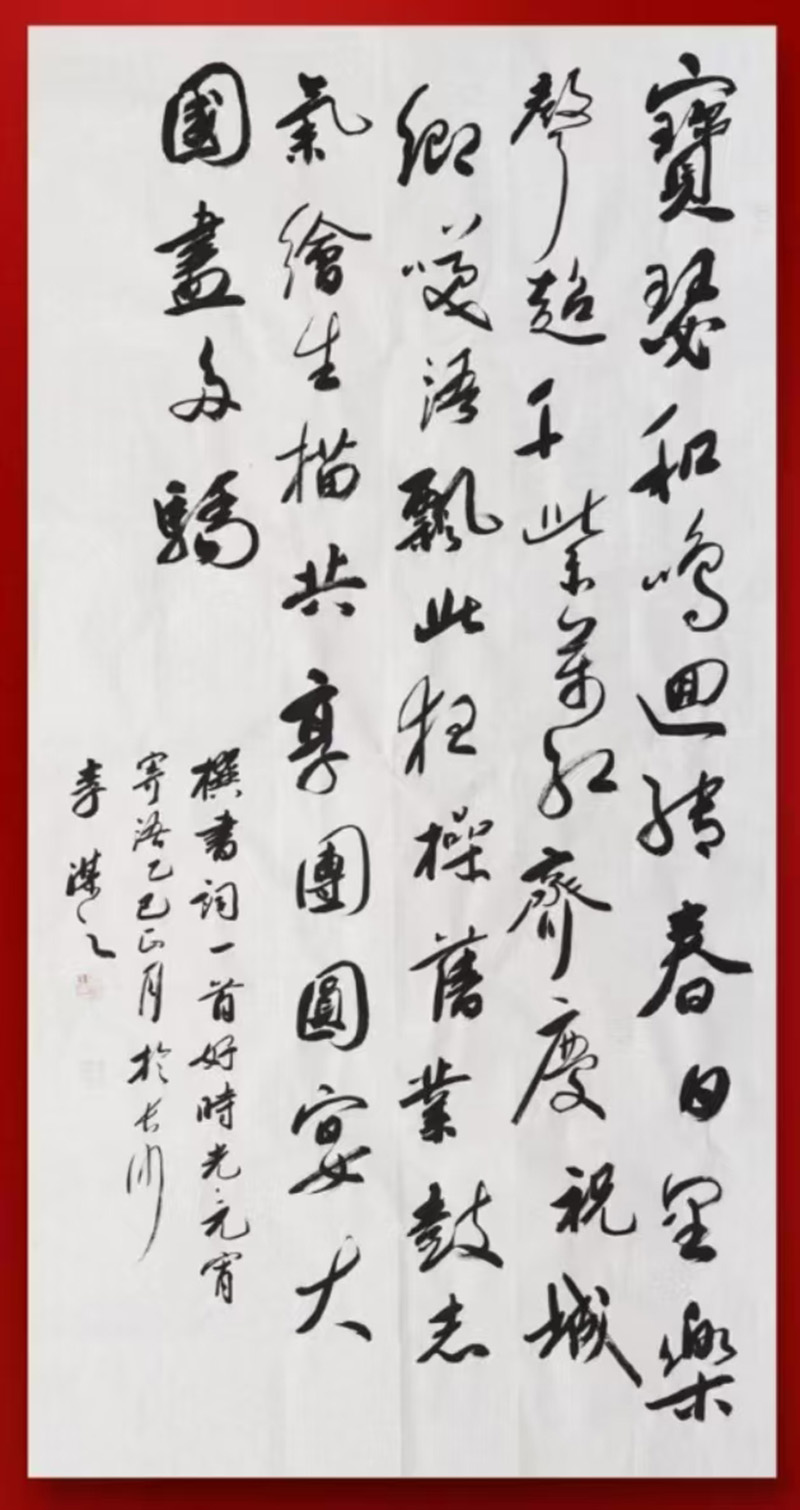 寶瑟和鳴迴繞春日里樂
聲超千紫萬紅齊慶祝城
鄉笑語飄此狂操舊業鼓志
氣繪生描共享團圓宴大
國盡多驕
撰書詞一首好時光·元宵
寄語乙巳正月於長沙
李謀